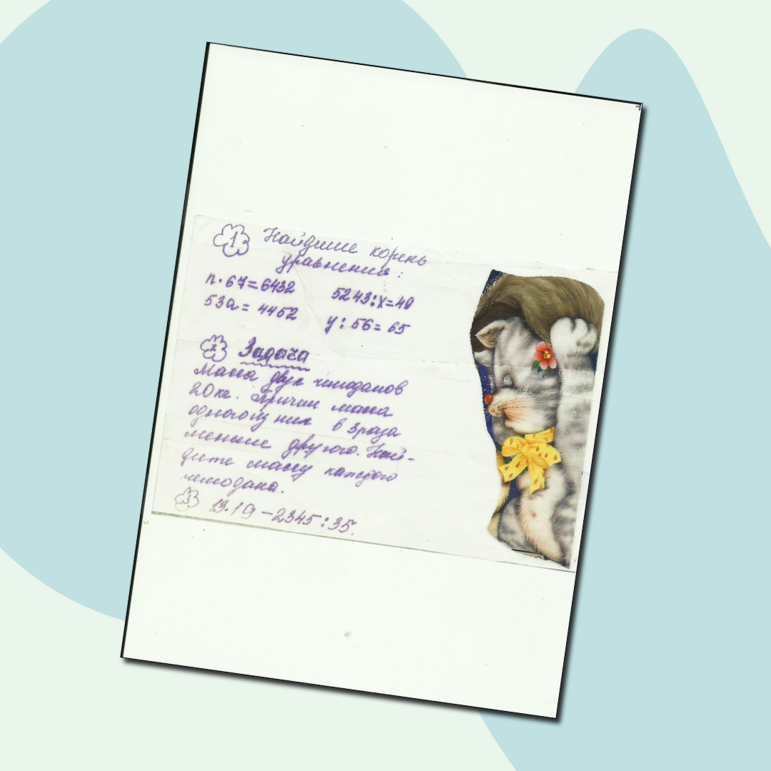 1 Найдите корень
уравнения:
n·67=6432 5243:x=49
53a=4452 y:56=65
2 Задача
Масса двух чемоданов
20кг. Причем масса
одного из них в 3раза
меньше другого. Най-
дите массу каждого
чемодана.
3 13·19-2345:35.